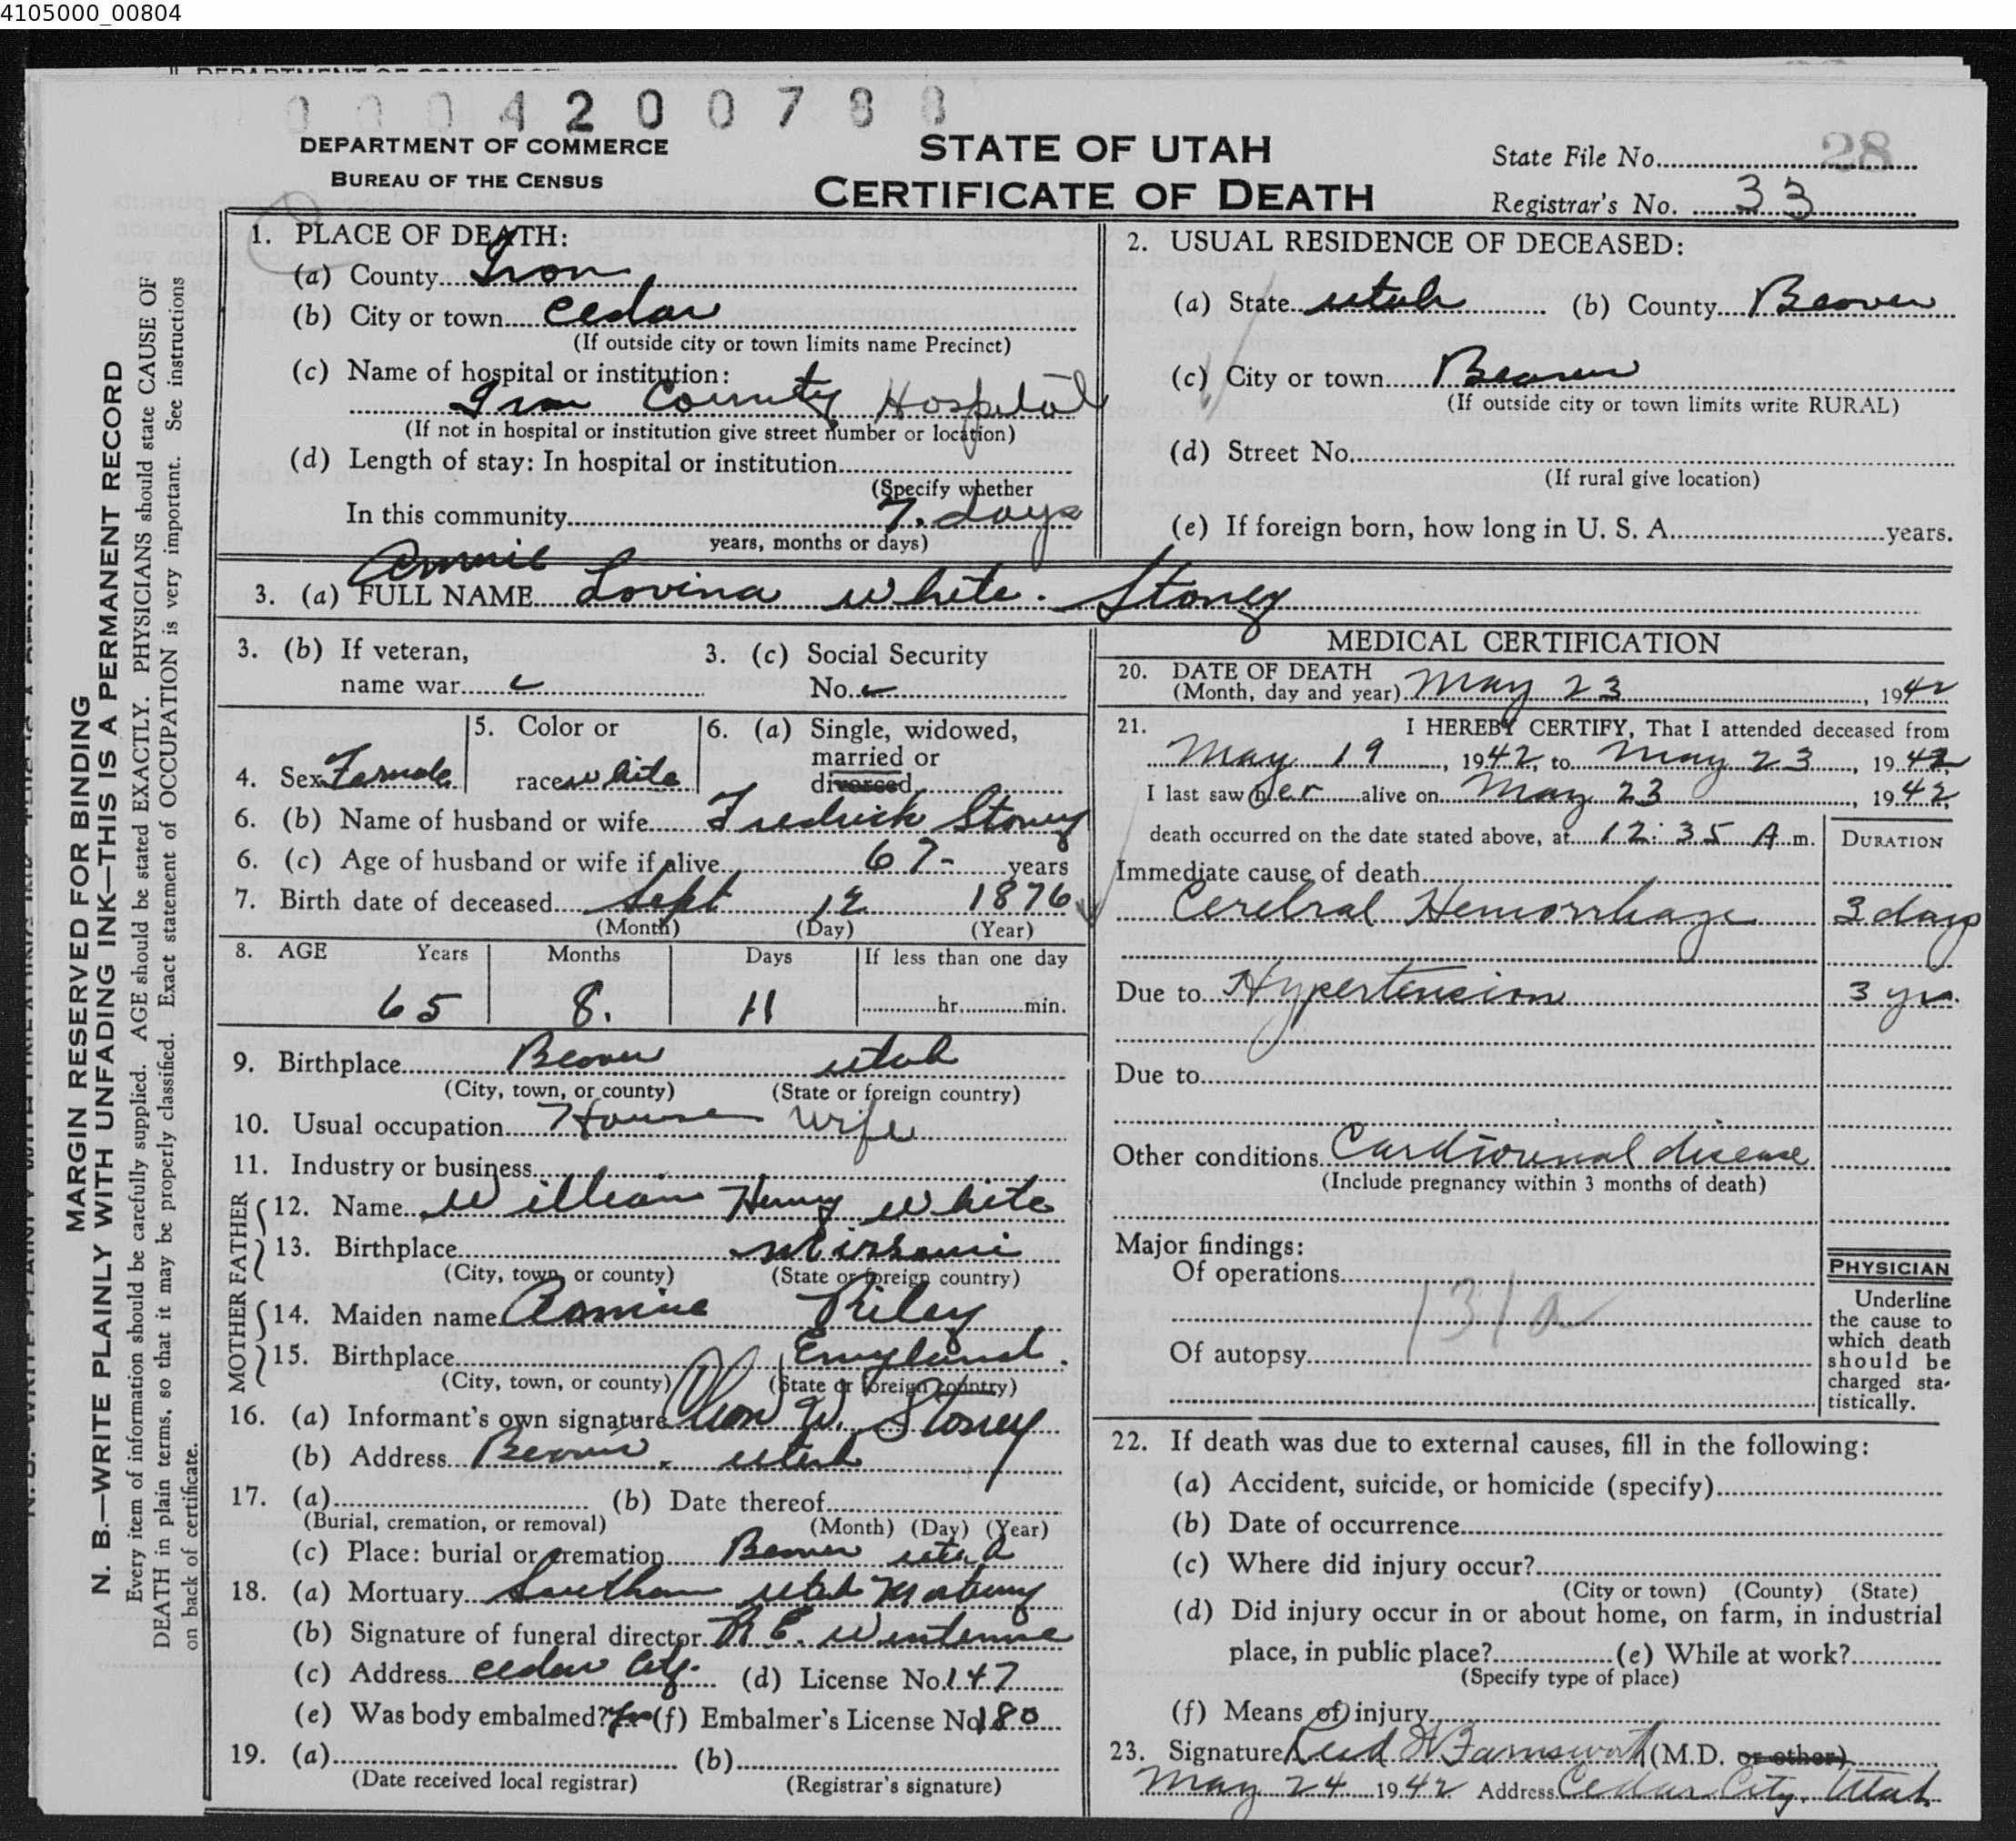 4105000_00804
0004200788
DEPARTMENT OF COMMERCE
BUREAU OF THE CENSUS
STATE OF UTAH
CERTIFICATE OF DEATH
State File No. 28
Registrar's No. 33
MARGIN RESERVED FOR BINDING
N. B.—WRITE PLAINLY WITH UNFADING INK—THIS IS A PERMANENT RECORD
Every item of information should be carefully supplied. AGE should be stated EXACTLY. PHYSICIANS should state CAUSE OF
DEATH in plain terms, so that it may be properly classified. Exact statement of OCCUPATION is very important. See instructions
on back of certificate.
1. PLACE OF DEATH:
(a) County Iron
(b) City or town Cedar
(If outside city or town limits name Precinct)
(c) Name of hospital or institution:
Iron County Hospital
(If not in hospital or institution give street number or location)
(d) Length of stay: In hospital or institution
(Specify whether
In this community 7. days
years, months or days)
2. USUAL RESIDENCE OF DECEASED:
(a) State Utah (b) County Beaver
(c) City or town Beaver
(If outside city or town limits write RURAL)
(d) Street No.
(If rural give location)
(e) If foreign born, how long in U. S. A. years.
Annie
3. (a) FULL NAME Lovina White. Stoney
3. (b) If veteran,
name war
3. (c) Social Security
No.
4. Sex Female
5. Color or
race white
6. (a) Single, widowed,
married or
divorced
6. (b) Name of husband or wife Fredrick Stoney
6. (c) Age of husband or wife if alive 67- years
7. Birth date of deceased Sept 12 1876
(Month) (Day) (Year)
8. AGE Years Months Days If less than one day
65 8. 11 hr. min.
9. Birthplace Beaver Utah
(City, town, or county) (State or foreign country)
10. Usual occupation House Wife
11. Industry or business
FATHER
12. Name William Henry White
13. Birthplace Missouri
(City, town, or county) (State or foreign country)
MOTHER
14. Maiden name Annie Riley
15. Birthplace England.
(City, town, or county) (State or foreign country)
16. (a) Informant's own signature W. Stoney
(b) Address Beaver, Utah
17. (a) (b) Date thereof
(Burial, cremation, or removal) (Month) (Day) (Year)
(c) Place: burial or cremation Beaver Utah
18. (a) Mortuary Southern Utah Mortuary
(b) Signature of funeral director
(c) Address Cedar City. (d) License No. 147
(e) Was body embalmed? Yes (f) Embalmer's License No. 180
19. (a) (b)
(Date received local registrar) (Registrar's signature)
MEDICAL CERTIFICATION
20. DATE OF DEATH
(Month, day and year) May 23, 1942
21. I HEREBY CERTIFY, That I attended deceased from
May 19, 1942, to May 23, 1942,
I last saw her alive on May 23, 1942,
death occurred on the date stated above, at 12:35 A.m.
DURATION
Immediate cause of death
Cerebral Hemorrhage 3 days
Due to Hypertension 3 yrs.
Due to
Other conditions Cardiorenal disease
(Include pregnancy within 3 months of death)
Major findings:
Of operations
131a
Of autopsy
PHYSICIAN
Underline
the cause to
which death
should be
charged sta-
tistically.
22. If death was due to external causes, fill in the following:
(a) Accident, suicide, or homicide (specify)
(b) Date of occurrence
(c) Where did injury occur?
(City or town) (County) (State)
(d) Did injury occur in or about home, on farm, in industrial
place, in public place? (e) While at work?
(Specify type of place)
(f) Means of injury
23. Signature Reed W Farnsworth (M.D. or other)
May 24 1942 Address Cedar City, Utah